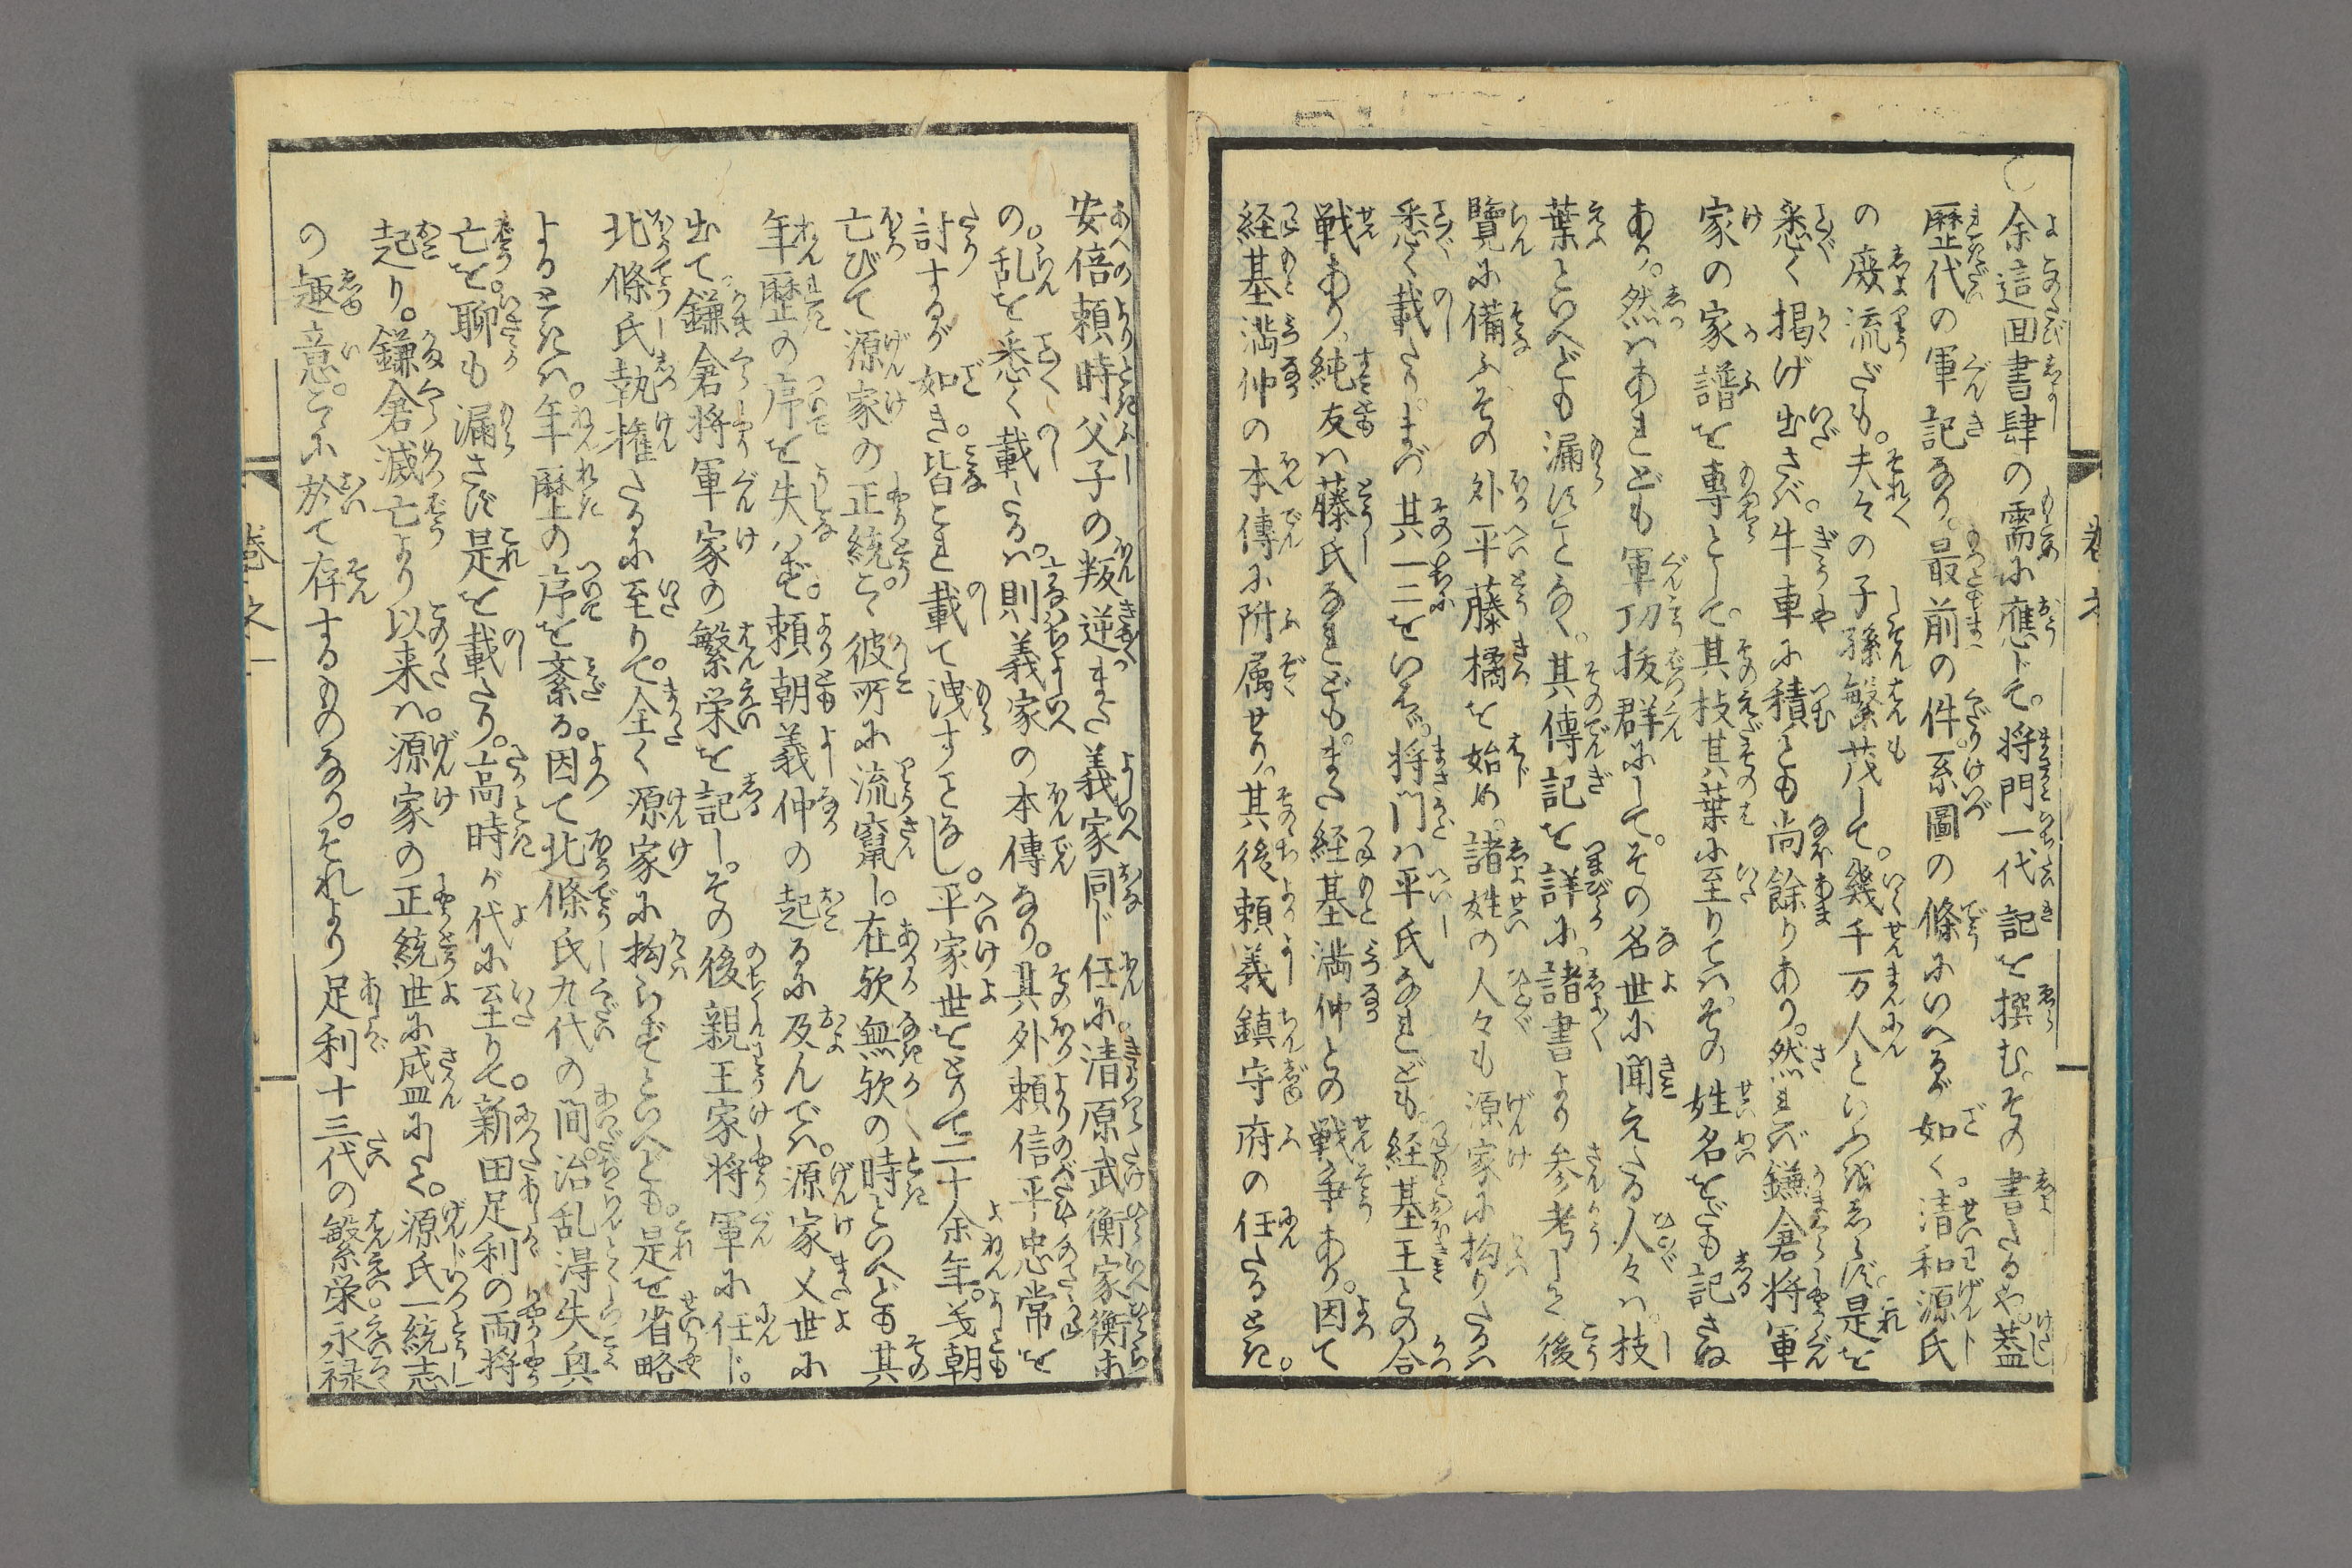 ○余這回書肆の需に應じて。将門一代記を撰む。その書たるや。蓋し
歴代の軍記なり。最前の件系圖の條にいへるが如く。清和源氏
の廢流だも。夫々の子孫繁茂して。幾千万人といふをしらず。是を
悉く掲げ出さば。牛車に積とも尚餘りあり。然れば鎌倉将軍
家の家譜を專として。其枝其葉に至りては。その姓名をだも記さぬ
あり。然はあれども軍功抜群にして。その名世に聞えたる人々は。枝
葉といへども漏すことなく。其傳記を詳に。諸書より参考して後
覧に備ふ。その外平藤橘を始め。諸姓の人々も源家に拘りたるハ
悉く載たり。まづ其一二をいはゞ。将門ハ平氏なれども。経基王との合
戦あり。純友ハ藤氏なれども。また経基満仲との戦争あり。因て
経基満仲の本傳に附属せり。其後頼義鎮守府の任たるとき。
巻之一
安倍頼時父子の叛逆また義家同じ任に。清原武衡家衡ホ
の。乱を悉く載たるハ。則義家の本傳なり。其外頼信平忠常を
討するが如き。皆これ載て洩すことなし。平家世をとりて二十余年。義朝
亡びて源家の正統こゝ彼所に流竄し。在欤無欤の時といへども其
年歴の序を失ハず。頼朝義仲の起るに及んでハ。源家乂世に
出て鎌倉将軍家の繁栄を記し。その後親王家将軍に任じ。
北條氏執権たるに至りて。全く源家に拘らずといへども。是を省略
よるときハ。年暦の序を紊る。因て北條氏九代の間。治乱得失興
亡を。聊も漏さず是を載たり。高時が代に至りて。新田足利の両将
起り。鎌倉滅亡より以来ハ。源家の正統世に盛にして。源氏一統志
の趣意。こゝに於て存するものなり。それより足利十三代の繁栄永禄
巻之一